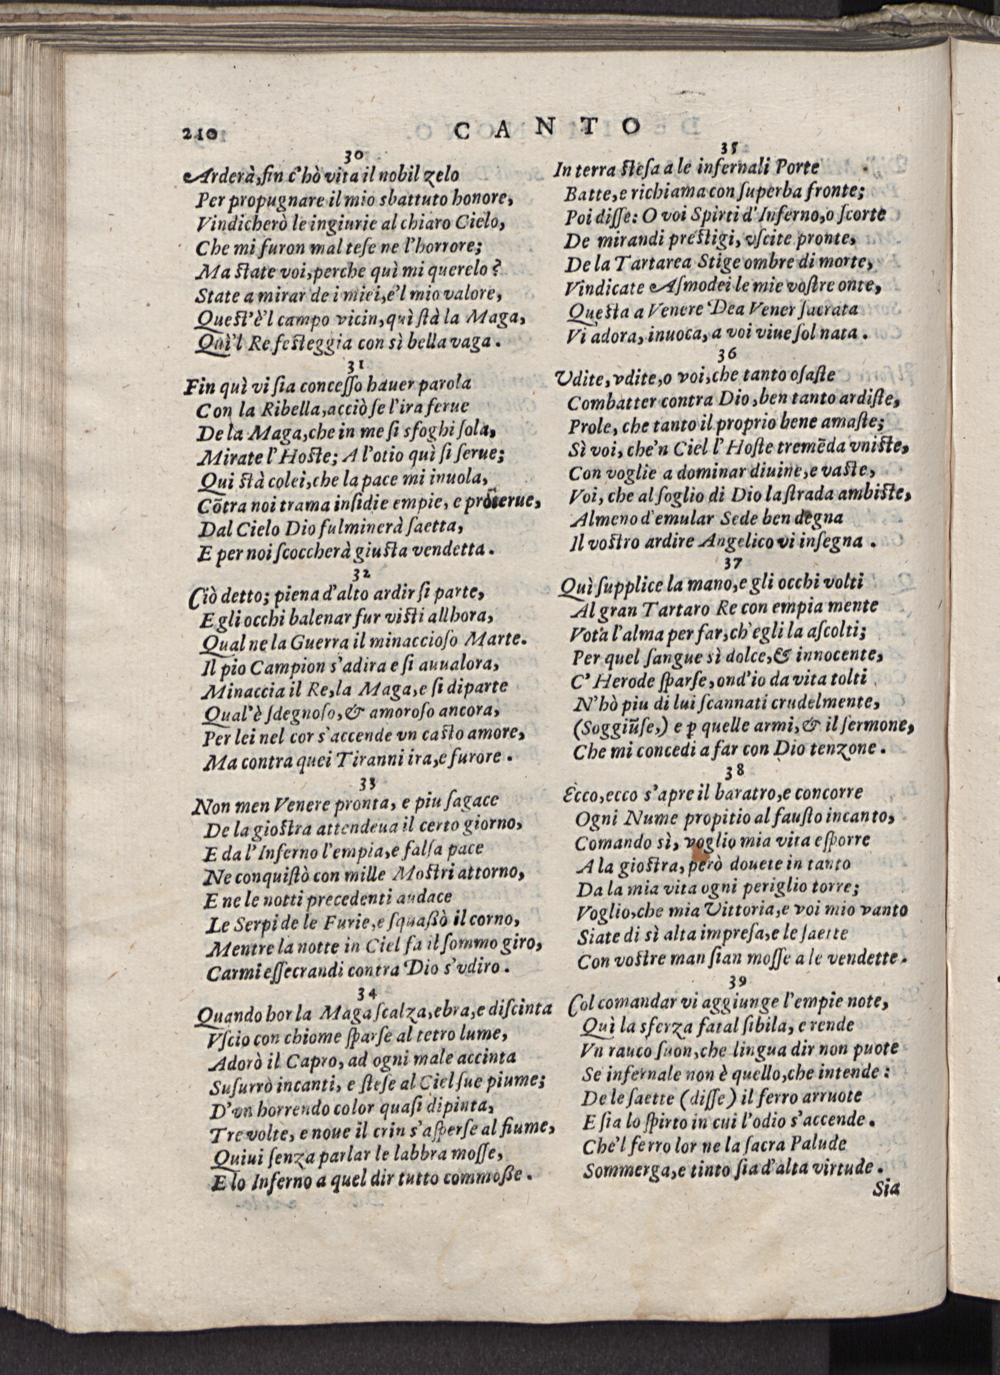 210
CANTO
30
Arderà, fin c'hò vita il nobil zelo
Per propugnare il mio sbattuto honore,
Vindicherò le ingiurie al chiaro Cielo,
Che mi furon mal tese ne l'horrore;
Ma state voi, perche quì mi querelo?
State a mirar de i miei, e'l mio valore,
Quest'è'l campo vicin, quì stà la Maga,
Quì'l Re festeggia con sì bella vaga.
31
Fin quì vi sia concesso hauer parola
Con la Ribella, acciò se l'ira ferue
De la Maga, che in me si sfoghi sola,
Mirate l'Hoste; A l'otio quì si serue;
Qui stà colei, che la pace mi inuola,
Cõtra noi trama insidie empie, e proterue,
Dal Cielo Dio fulminerà saetta,
E per noi scoccherà giusta vendetta.
32
Ciò detto; piena d'alto ardir si parte,
E gli occhi balenar fur visti allhora,
Qual ne la Guerra il minaccioso Marte.
Il pio Campion s'adira e si auualora,
Minaccia il Re, la Maga, e si diparte
Qual'è sdegnoso, & amoroso ancora,
Per lei nel cor s'accende vn casto amore,
Ma contra quei Tiranni ira, e furore.
33
Non men Venere pronta, e piu sagace
De la giostra attendeua il certo giorno,
E da l'Inferno l'empia, e falsa pace
Ne conquistò con mille Mostri attorno,
E ne le notti precedenti audace
Le Serpi de le Furie, e squassò il corno,
Mentre la notte in Ciel fa il sommo giro,
Carmi essecrandi contra Dio s'vdiro.
34
Quando hor la Maga scalza, ebra, e discinta
Vscio con chiome sparse al tetro lume,
Adorò il Capro, ad ogni male accinta
Susurrò incanti, e stese al Ciel sue piume;
D'vn horrendo color quasi dipinta,
Tre volte, e noue il crin s'asperse al fiume,
Quiui senza parlar le labbra mosse,
E lo Inferno a quel dir tutto commosse.
35
In terra stesa a le infernali Porte
Batte, e richiama con superba fronte;
Poi disse: O voi Spirti d'Inferno, o scorte
De mirandi prestigi, vscite pronte,
De la Tartarea Stige ombre di morte,
Vindicate Asmodei le mie vostre onte,
Questa a Venere Dea Vener sacrata
Vi adora, inuoca, a voi viue sol nata.
36
Vdite, vdite, o voi, che tanto osaste
Combatter contra Dio, ben tanto ardiste,
Prole, che tanto il proprio bene amaste;
Sì voi, che'n Ciel l'Hoste tremẽda vniste,
Con voglie a dominar diuine, e vaste,
Voi, che al soglio di Dio la strada ambiste,
Almeno d'emular Sede ben degna
Il vostro ardire Angelico vi insegna.
37
Quì supplice la mano, e gli occhi volti
Al gran Tartaro Re con empia mente
Vota l'alma per far, ch'egli la ascolti;
Per quel sangue sì dolce, & innocente,
C'Herode sparse, ond'io da vita tolti
N'hò piu di lui scannati crudelmente,
(Soggiũse,) e ꝑ quelle armi, & il sermone,
Che mi concedi a far con Dio tenzone.
38
Ecco, ecco s'apre il baratro, e concorre
Ogni Nume propitio al fausto incanto,
Comando sì, voglio mia vita esporre
A la giostra, però douete in tanto
Da la mia vita ogni periglio torre;
Voglio, che mia Vittoria, e voi mio vanto
Siate di sì alta impresa, e le saette
Con vostre man sian mosse a le vendette.
39
Col comandar vi aggiunge l'empie note,
Quì la sferza fatal sibila, e rende
Vn rauco suon, che lingua dir non puote
Se infernale non è quello, che intende:
De le saette (disse) il ferro arruote
E sia lo spirto in cui l'odio s'accende.
Che'l ferro lor ne la sacra Palude
Sommerga, e tinto sia d'alta virtude.
Sia